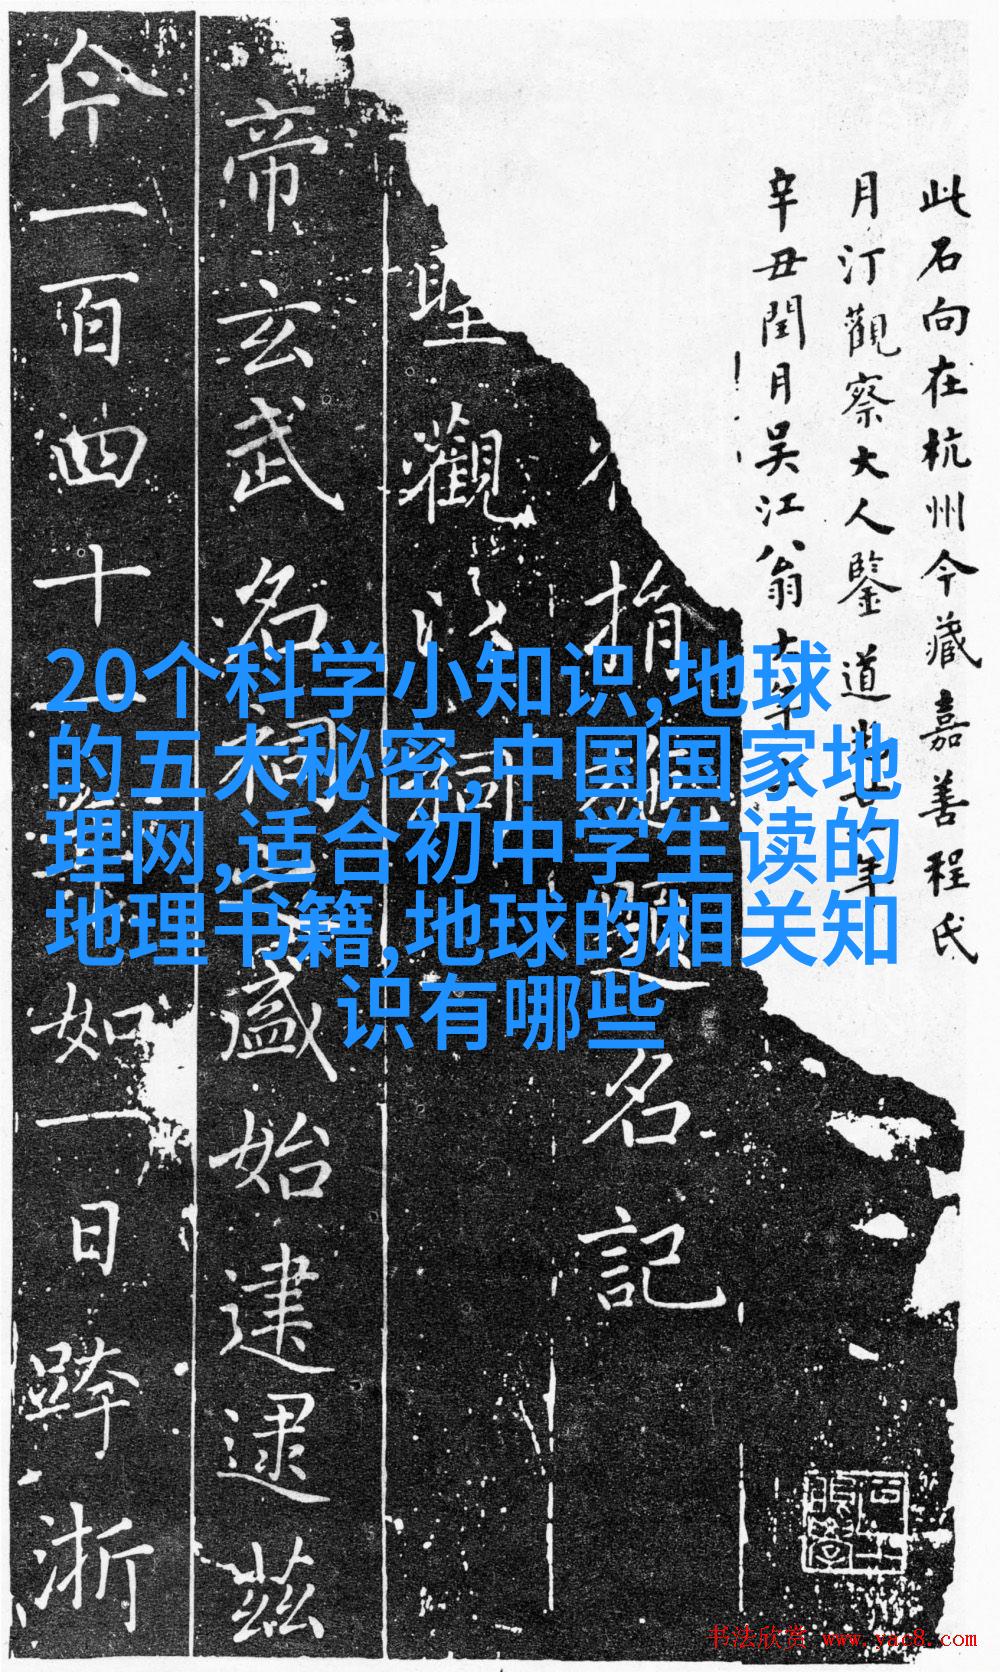 此石向在杭州今藏嘉善程氏
月汀觀察大人鑒道光廿一年
辛丑閏月吳江翁大年
捐施題名記
聖觀祠
帝玄武名祠盛始建逮茲
今一百四十一如一日跨浙
20个科学小知识,地球
的五大秘密,中国国家地
理网,适合初中学生读的
地理书籍,地球的相关知
识有哪些
书法欣赏 www.yac8.com